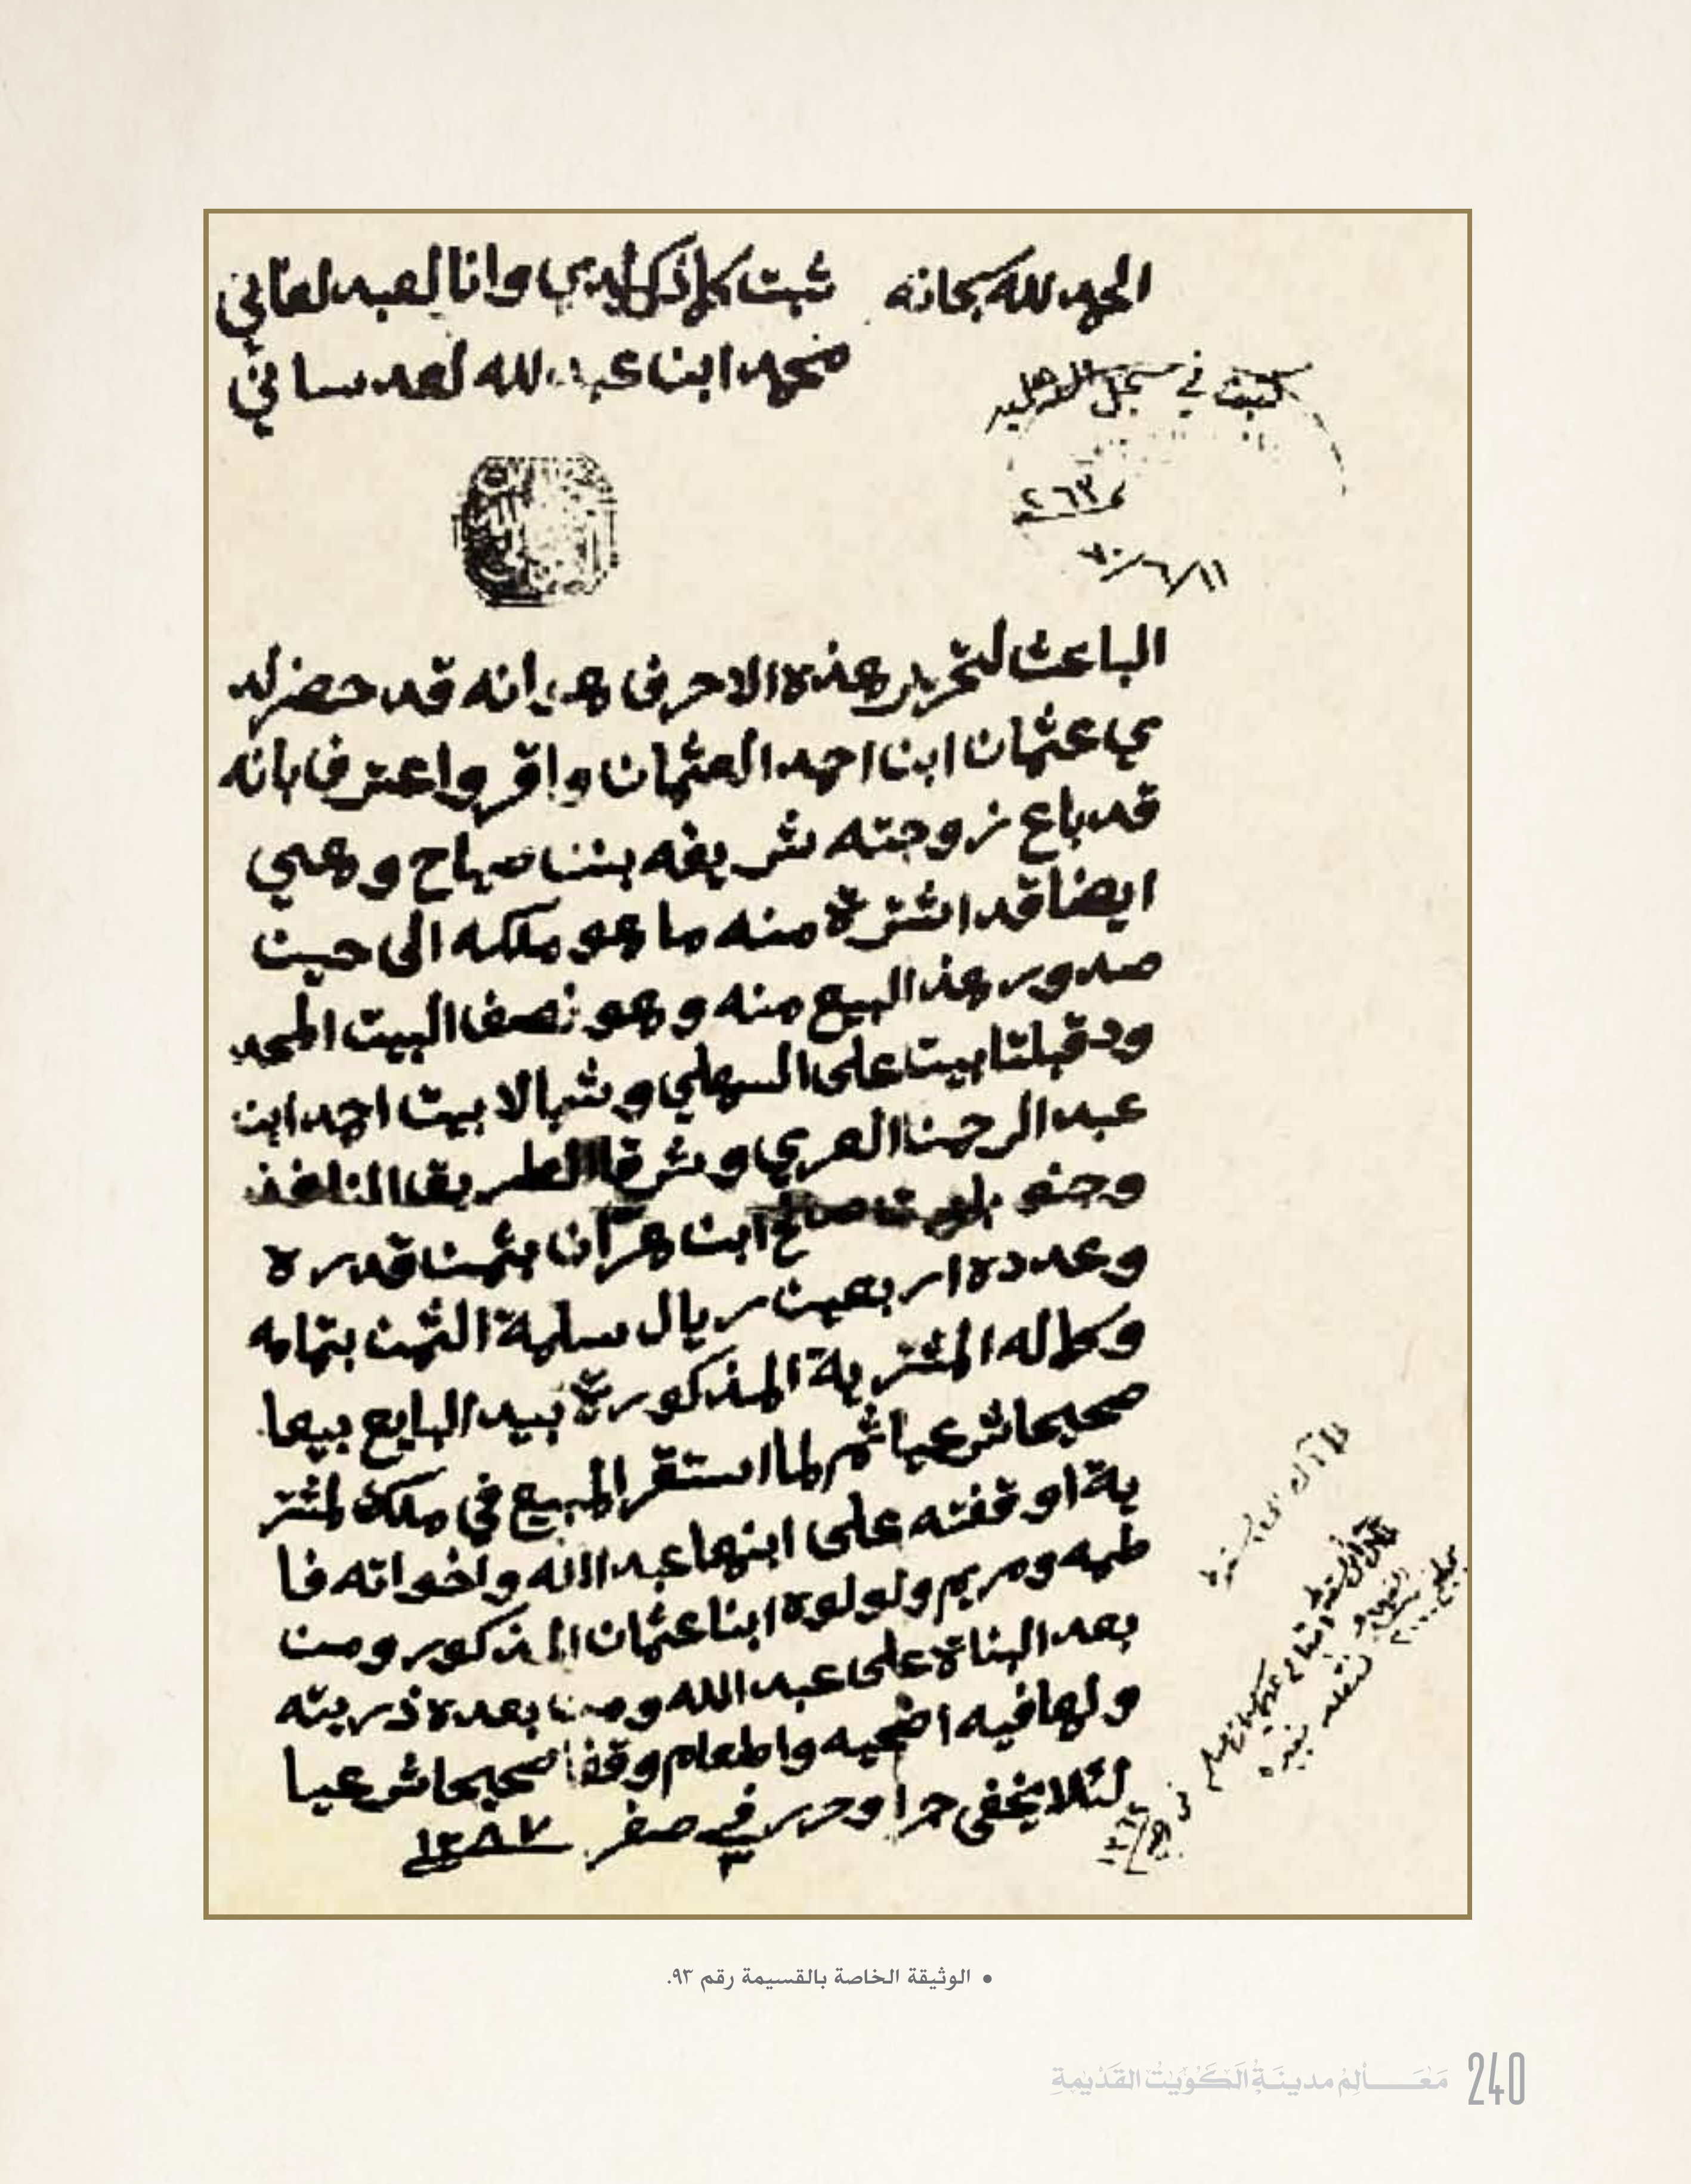 الحمد لله سبحانه
ثبت كلما ذكر لدي وانا العبد لفاني
محمد ابن عبد لله لعدساني
كتبت في سجل
٢٦٣
١١/٦/٧٠
الباعث لتحرير هذه الاحرف هو انه قد حضر لد
ي عثمان ابن احمد العثمان واقر واعترف بانه
قد باع زوجته شريفه بنت صباح وهي
ايضا قد اشترة منه ما هو ملكه الى حين
صدور هذ البيع منه وهو نصف البيت المحد
ود قبلتا بيت على السهلي وشمالا بيت احمد ابن
عبد الرحمن العري وشرقا الطريق النافذ
وجنو بيت صالح ابن هران بثمن قدره
وعدده اربعين ريال سلمة الثمن بتمامه
وكماله المشترية المذكورة بيد البايع بيعا
صحيحا شرعيا ثم لما استقر المبيع في ملك لمشتر
ية اوقفته على ابنها عبد الله واخواته فا
طمه ومريم ولولوه ابنا عثمان المذكور ومن
بعد البناة على عبد الله ومن بعده ذريته
ولها فيه اضحيه واطعام وقفا صحيحا شرعيا
لئلا يخفى جرا وحرر في ٣ صفر ١٢٨٧
• الوثيقة الخاصة بالقسيمة رقم ٩٣.
مَعَـالِمُ مدينَـةِ الكُوَيْت القَدْيمَةِ 240